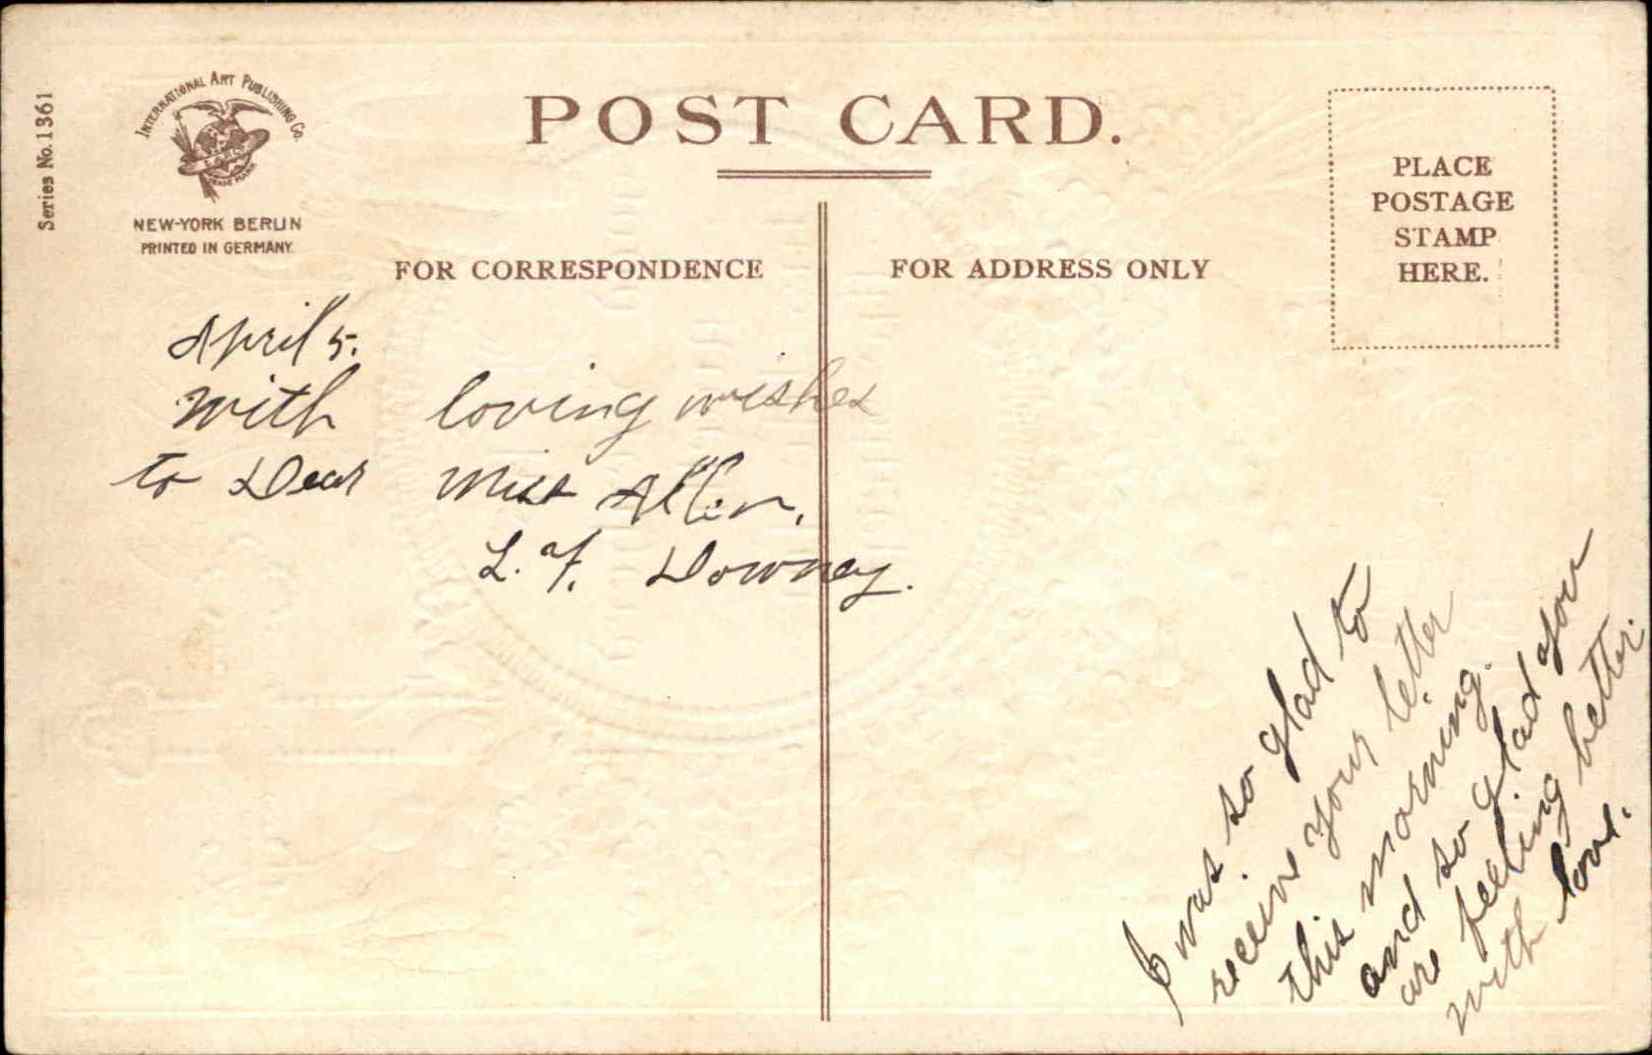 Series No. 1361
INTERNATIONAL ART PUBLISHING Co.
NEW-YORK BERLIN
PRINTED IN GERMANY
POST CARD.
PLACE
POSTAGE
STAMP
HERE.
FOR CORRESPONDENCE
FOR ADDRESS ONLY
April 5.
With loving wishes
to Dear Miss Allen.
L. F. Downey.
I was so glad to
receive your letter
this morning.
and so glad you
are feeling better.
with love.